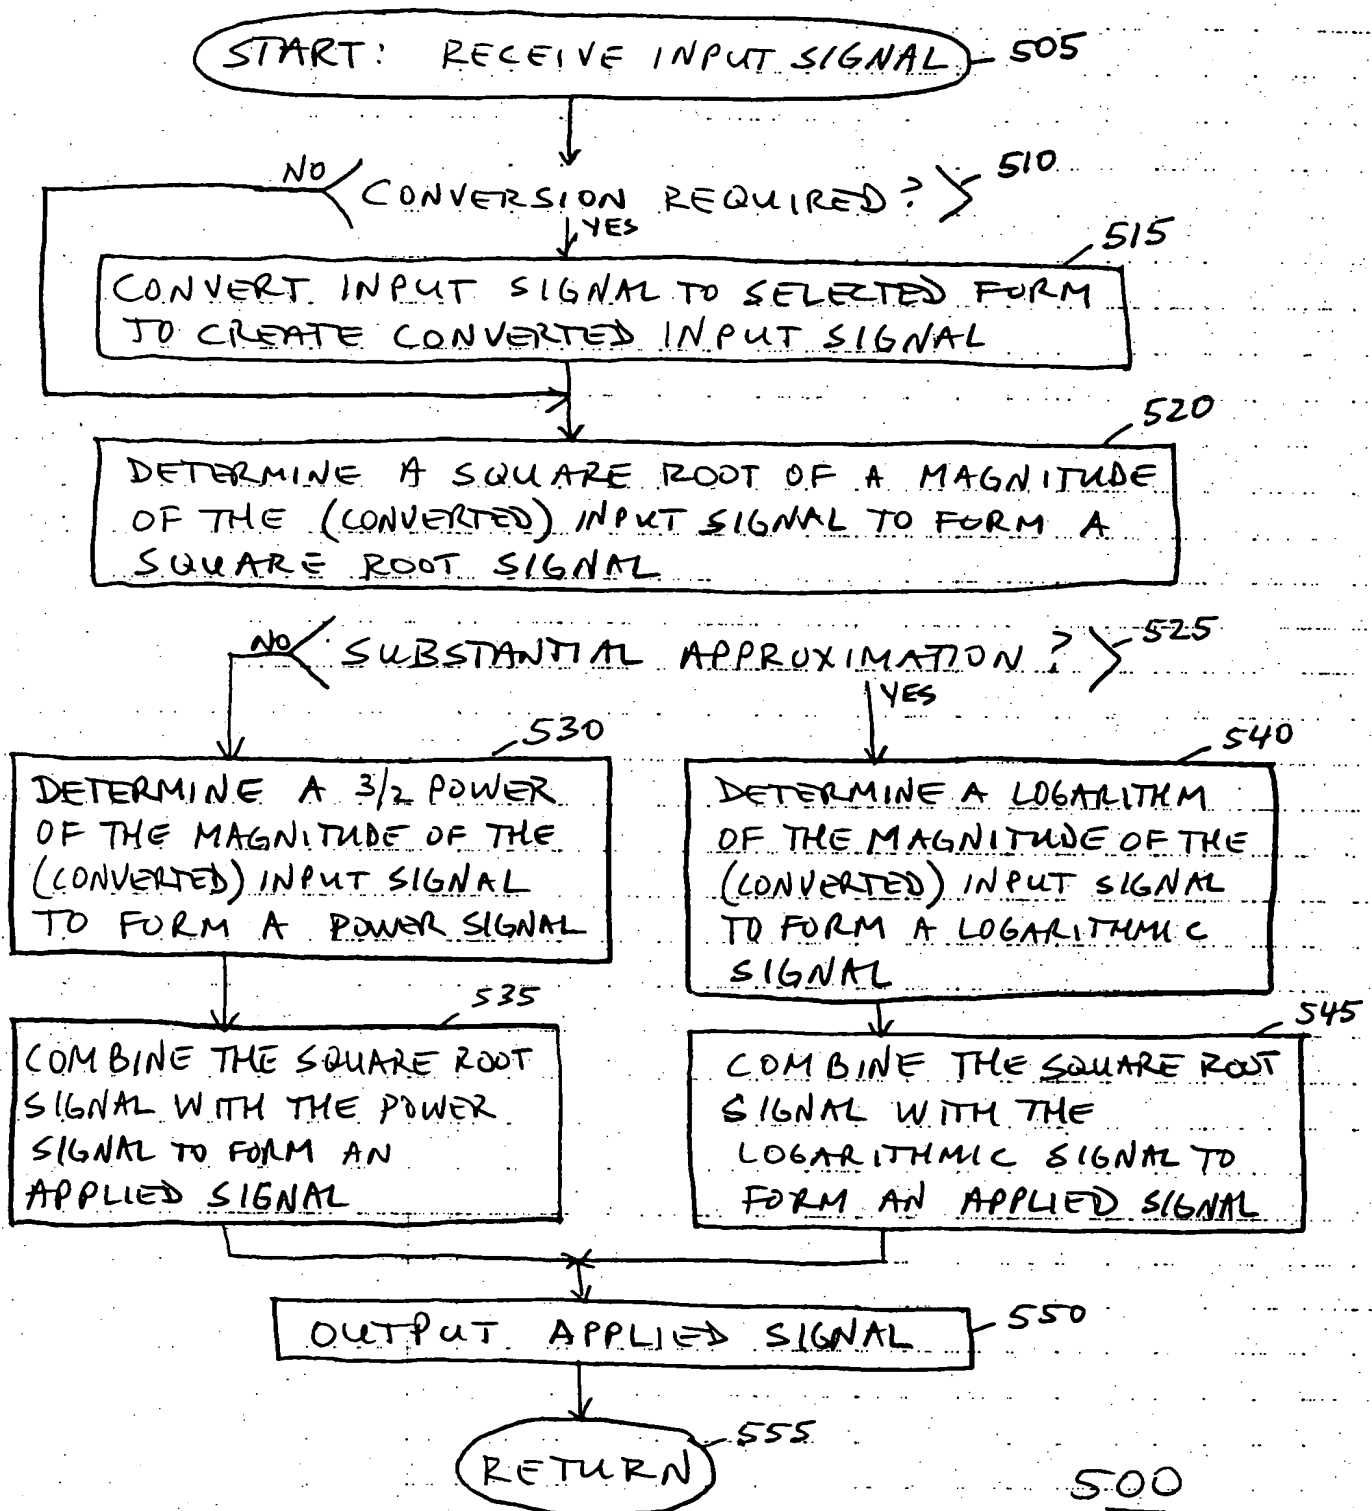 START: RECEIVE INPUT SIGNAL 505
NO CONVERSION REQUIRED? 510
YES
515
CONVERT INPUT SIGNAL TO SELECTED FORM
TO CREATE CONVERTED INPUT SIGNAL
520
DETERMINE A SQUARE ROOT OF A MAGNITUDE
OF THE (CONVERTED) INPUT SIGNAL TO FORM A
SQUARE ROOT SIGNAL
NO SUBSTANTIAL APPROXIMATION? 525
YES
530
DETERMINE A 3/2 POWER
OF THE MAGNITUDE OF THE
(CONVERTED) INPUT SIGNAL
TO FORM A POWER SIGNAL
540
DETERMINE A LOGARITHM
OF THE MAGNITUDE OF THE
(CONVERTED) INPUT SIGNAL
TO FORM A LOGARITHMIC
SIGNAL
535
COMBINE THE SQUARE ROOT
SIGNAL WITH THE POWER
SIGNAL TO FORM AN
APPLIED SIGNAL
545
COMBINE THE SQUARE ROOT
SIGNAL WITH THE
LOGARITHMIC SIGNAL TO
FORM AN APPLIED SIGNAL
OUTPUT APPLIED SIGNAL 550
RETURN 555
500